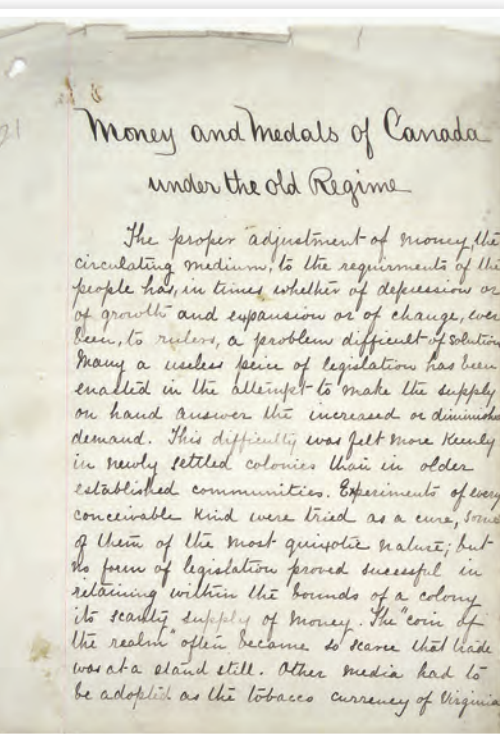 21
Money and Medals of Canada
under the old Regime
The proper adjustment of money, the
circulating medium, to the requirments of the
people has, in times whether of depression or
of growth and expansion or of change, ever
been, to rulers, a problem difficult of solution
Many a useless peice of legislation has been
enacted in the attempt to make the supply
on hand answer the increased or diminished
demand. This difficulty was felt more keenly
in newly settled colonies than in older
established communities. Experiments of every
conceivable kind were tried as a cure, some
of them of the most quixotic nature; but
no form of legislation proved sucessful in
retaining within the bounds of a colony
its scanty supply of money. The "coin of
the realm" often became so scarce that trade
was at a stand still. Other media had to
be adopted as the tobacco currency of Virginia